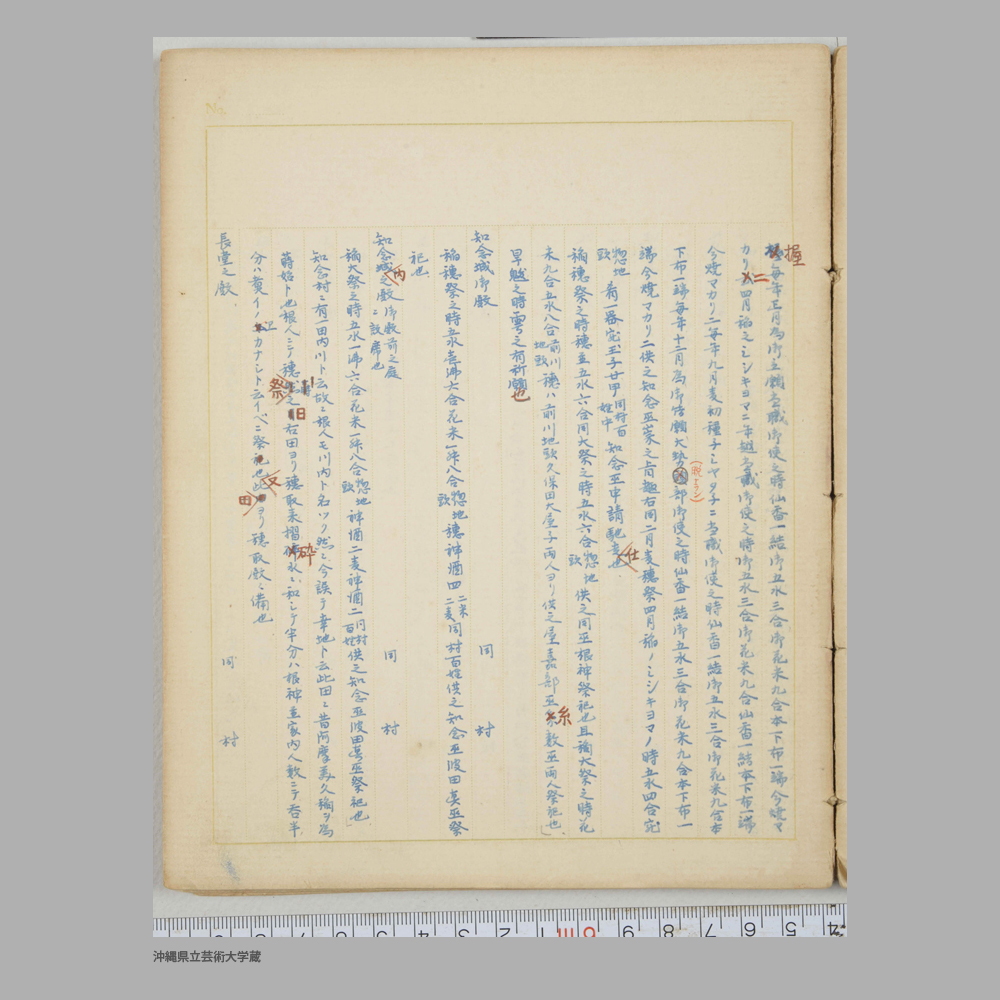 毎年正月為御立願当職御使之時仙香一結御五水三合御花米九合本下布一端今焼マ
カリ二四月稲之ミシキヨマニ年越当職御使之時御五水三合御花米九合仙香一結本下布一端
今焼マカリ二毎年九月麦初種子ミヤタ子ニ当職御使之時仙香一結御五水三合御花米九合本
下布一端毎年十二月為御結願大勢部御使之時仙香一結御五水三合御花米九合本下布一
端今焼マカリ二供之知念巫崇之肯趣右同二月麦穂祭四月稲ノミシキヨマノ時五水四合完
惣地頭肴一器完王子廿甲同村百姓中知念巫申請馳走仕也
稲穂祭之時穂並五水六合同大祭之時五水六合惣地頭供之同巫根神祭祀也且稲大祭之時花
米九合五水八合前川地頭穂ハ前川地頭久保田大屋子両人ヨリ供之屋嘉部巫糸数巫両人祭祀也」
旱魃之時雩之有祈願也
知念城御嶽 同村
稲穂祭之時五水壱沸六合花米一舛八合惣地頭穂神酒四二米二麦同村百姓供之知念巫波田真巫祭
祀也
知念城内之嶽御殿前之庭ニ設席也 同村
稲大祭之時五水一沸六合花米一舛八合惣地頭神酒二麦神酒二同村百姓供之知念巫波田真巫祭祀也」
知念村ニ有一田内川ト云故ニ根人モ川内ト名ツク然ニ今誤テ幸地ト云此田ニ昔阿摩美久稲ヲ為
蒔始ト也根人ニテ穂祭之旧右田ヨリ穂取来摺砕水ニ和シテ半分ハ根神並家内人数ニテ呑半
分ハ糞イノカナシト云イベニ祭祀也又此田ヨリ穂取嶽ニ備也
長堂之嶽 同村
握
二
沖縄県立芸術大学蔵